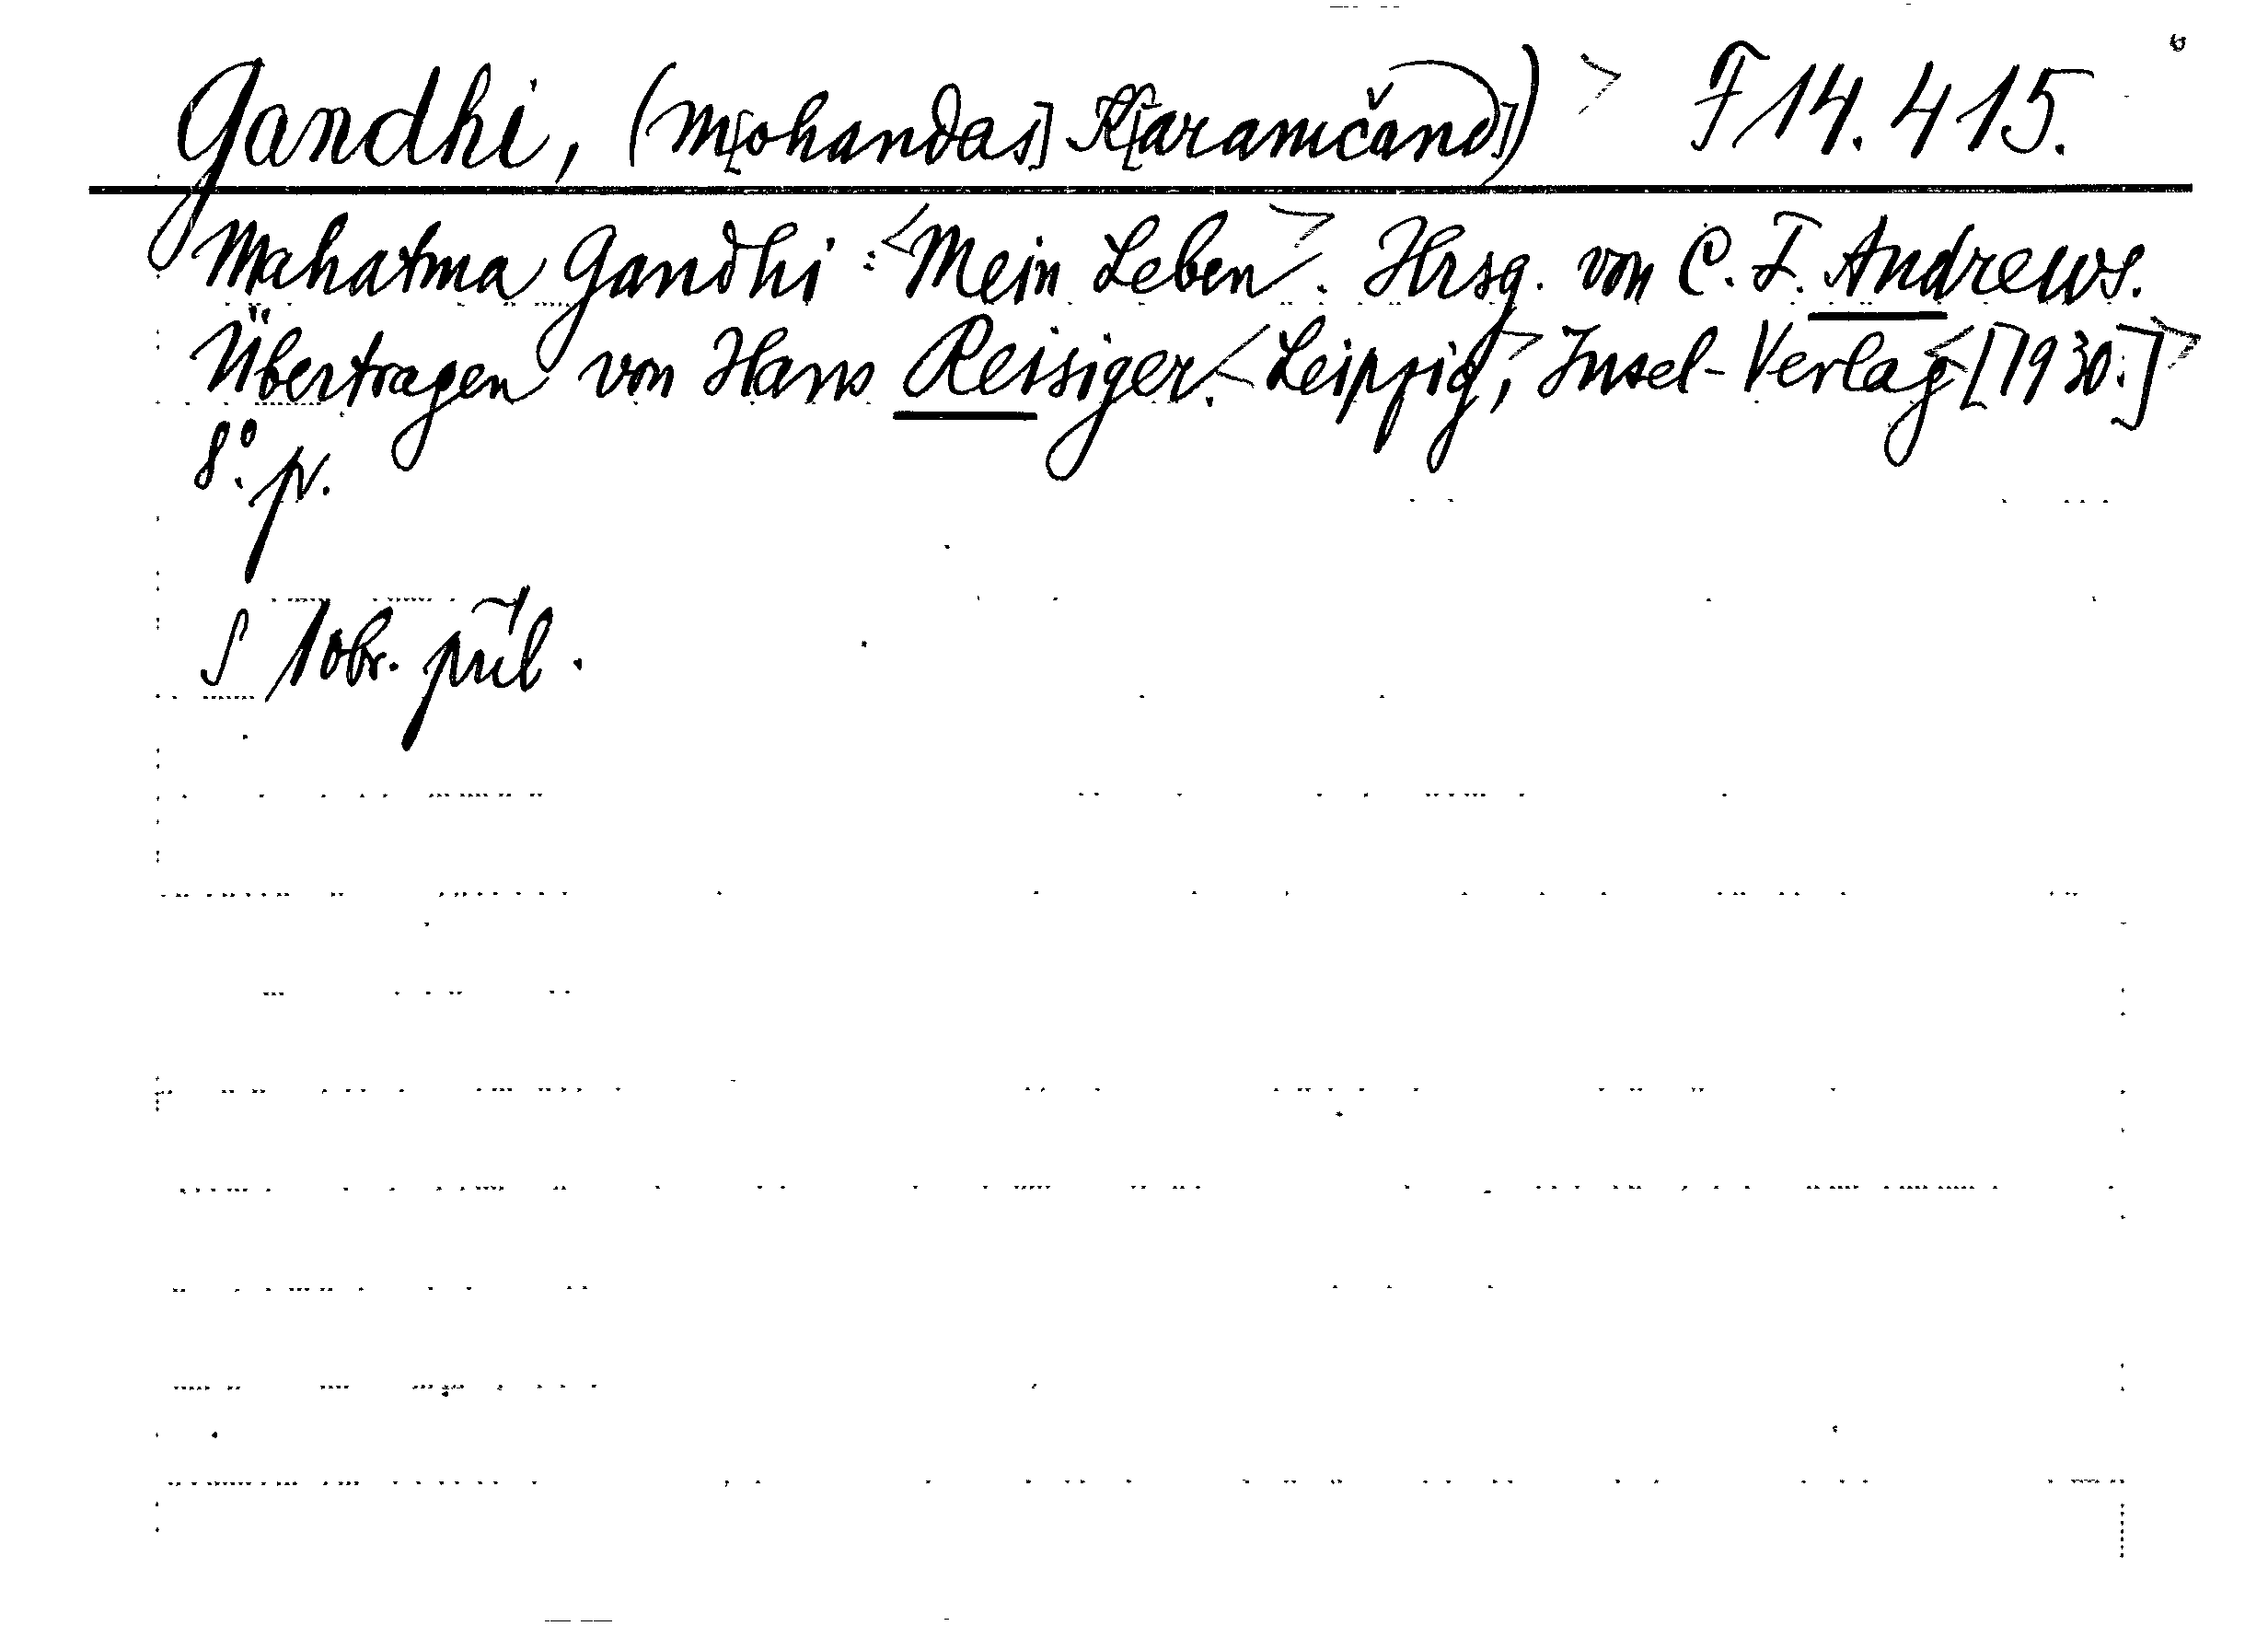 Gandhi, (M[ohandas] K[aramčand]) F 14.415.
Mahatma Gandhi: Mein Leben. Hrsg. von C. F. Andrews.
Übertragen von Hans Reisiger. Leipzig, Insel-Verlag [1930.]
8°. pv.
S 1 obr. příl.